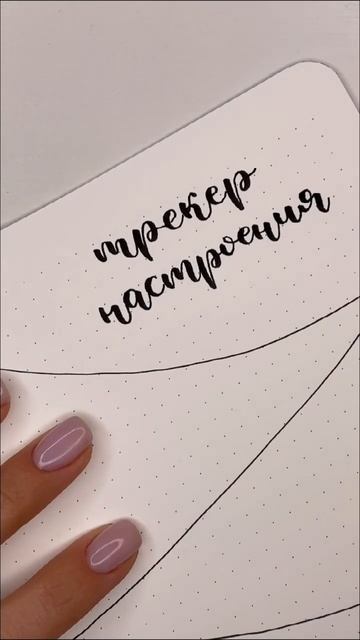 трекер
настроения